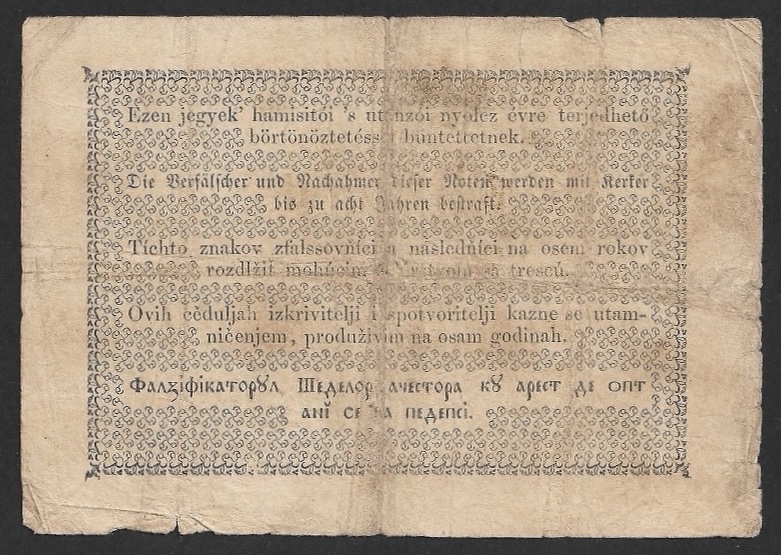 Ezen jegyek' hamisitói 's utánzói nyolcz évre terjedhető
börtönöztetéssel büntettetnek.
Die Verfälscher und Nachahmer dieser Noten werden mit Kerker
bis zu acht Jahren bestraft.
Tíchto znakov zfalssovníci a následníci na osem rokov
rozdlžiť mohúcim trescú.
Ovih cèduljah izkrivitelji i spotvoritelji kazne se utam-
ničenjem, produživim na osam godinah.
Фалꙃіфікаторꙋл Шеделор ачестора кꙋ арест де опт
анĭ се ва педепсі.